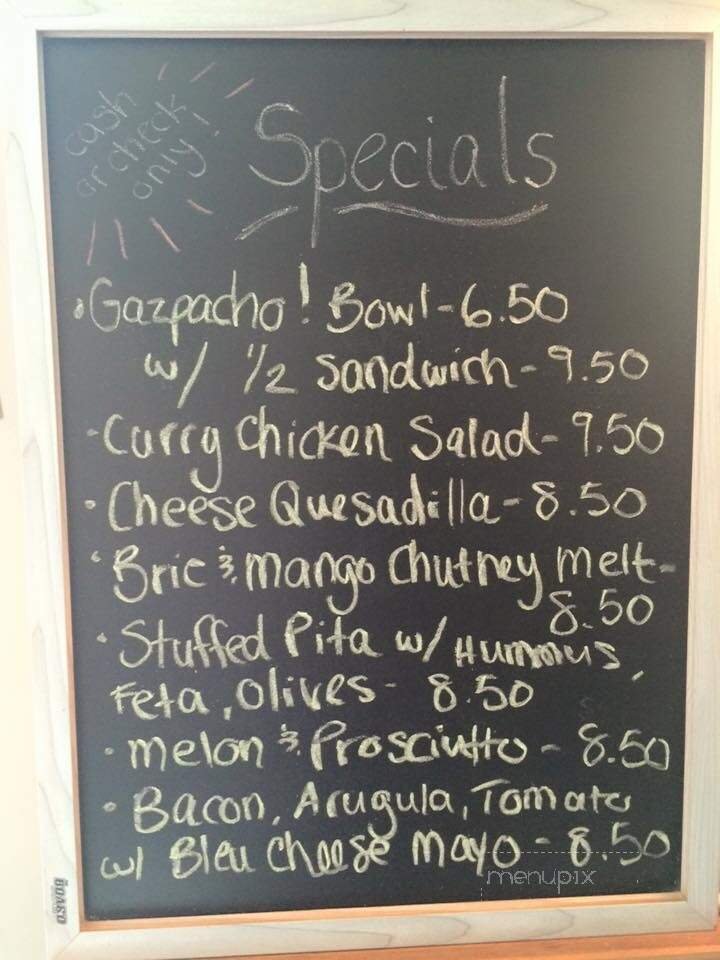 cash
or check
only!
Specials
· Gazpacho! Bowl - 6.50
w/ 1/2 Sandwich - 9.50
- Curry Chicken Salad - 9.50
· Cheese Quesadilla - 8.50
· Brie & Mango Chutney Melt -
8.50
· Stuffed Pita w/ Hummus,
Feta, Olives - 8.50
· Melon & Prosciutto - 8.50
· Bacon, Arugula, Tomato
w/ Bleu Cheese Mayo - 8.50
menupix
BOARD